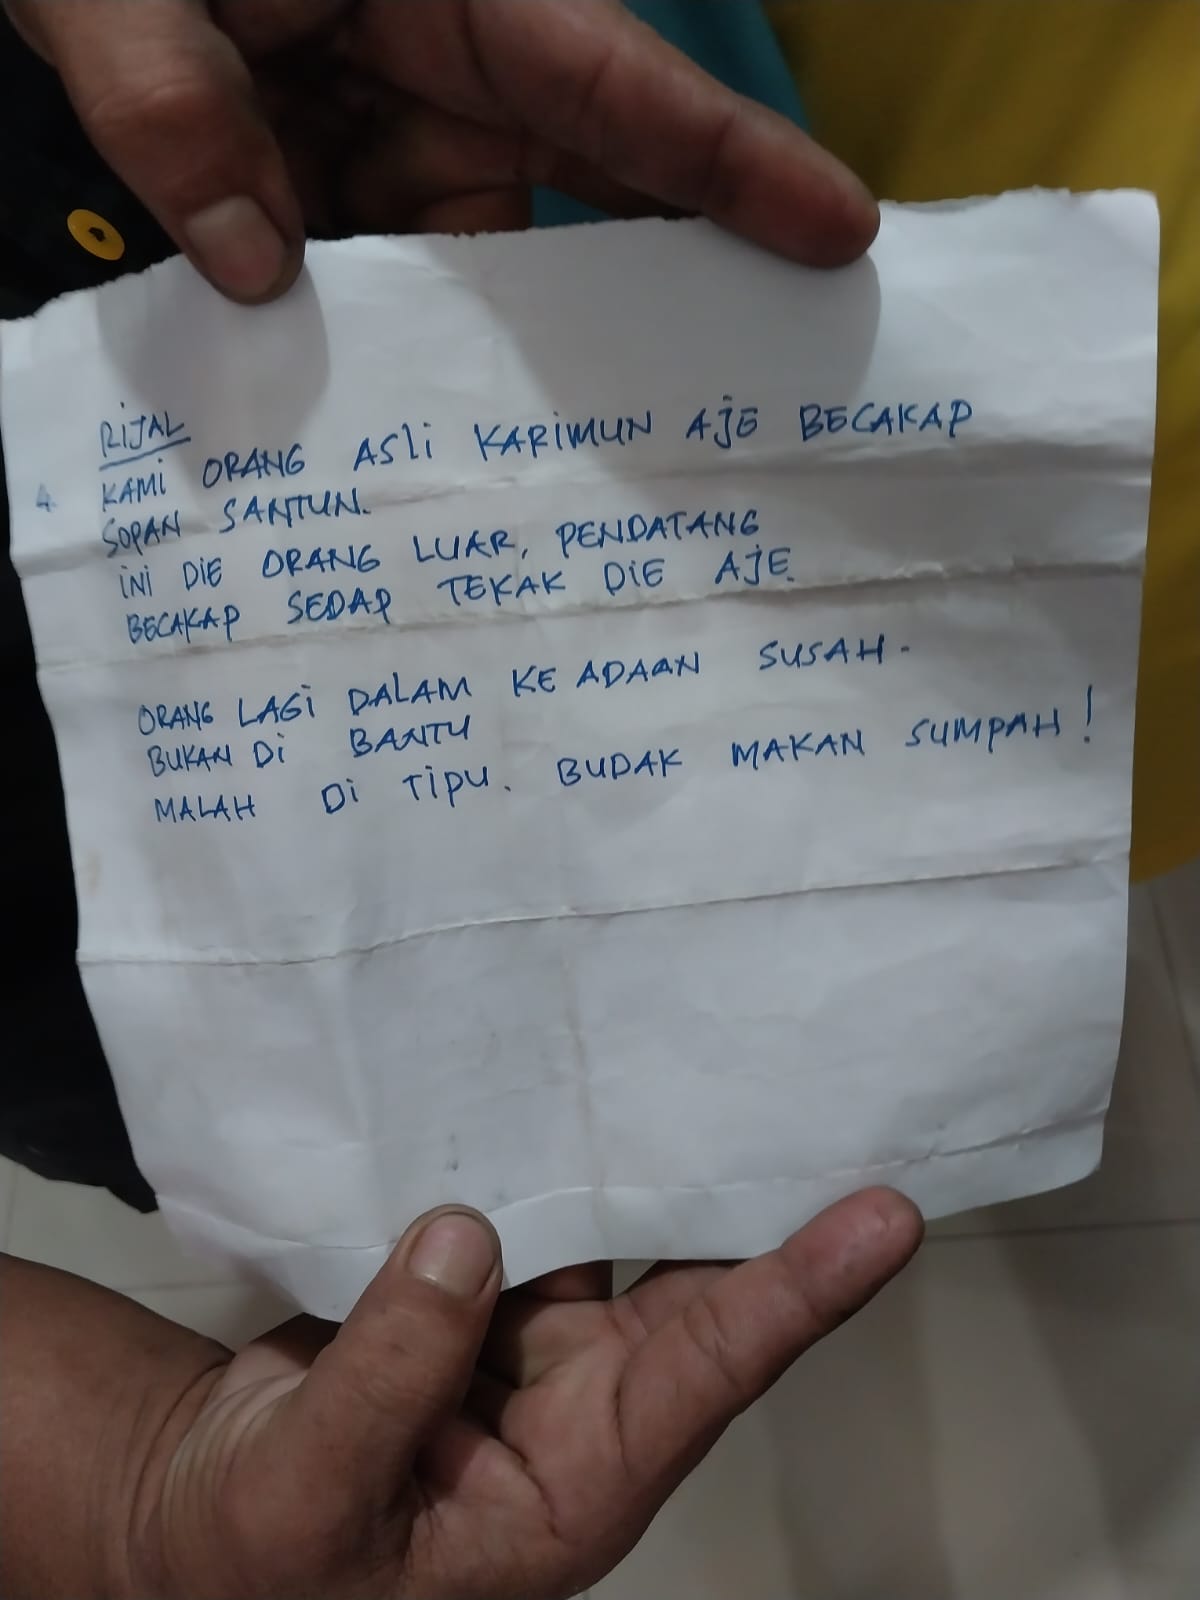 RIJAL
4. KAMI ORANG ASLI KARIMUN AJE BECAKAP
SOPAN SANTUN.
INI DIE ORANG LUAR, PENDATANG
BECAKAP SEDAP TEKAK DIE AJE.
ORANG LAGI DALAM KE ADAAN SUSAH.
BUKAN DI BANTU
MALAH DI TIPU. BUDAK MAKAN SUMPAH!